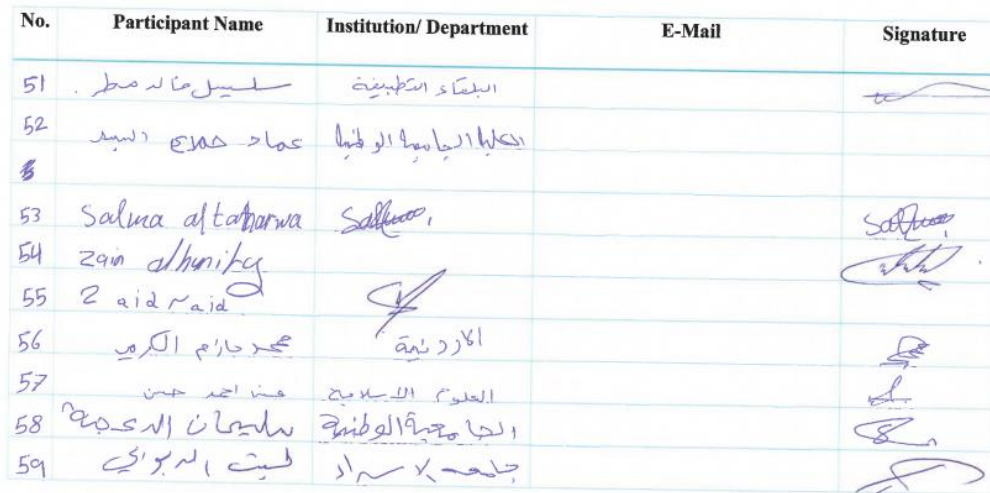 No. Participant Name Institution/ Department E-Mail Signature
51 سلسبيل خالد مطر البلقاء التطبيقية
52 عماد السيد الجامعة الوطنية
53 Salma altaharwa Salma
54 Zain alhunity
55 Zaid raid
56 محمد حازم الكرمي الاردنية
57 احمد حسن العلوم الاسلامية
58 سليمان الدعجة الجامعة الوطنية
59 ليث جامعه الاسراء